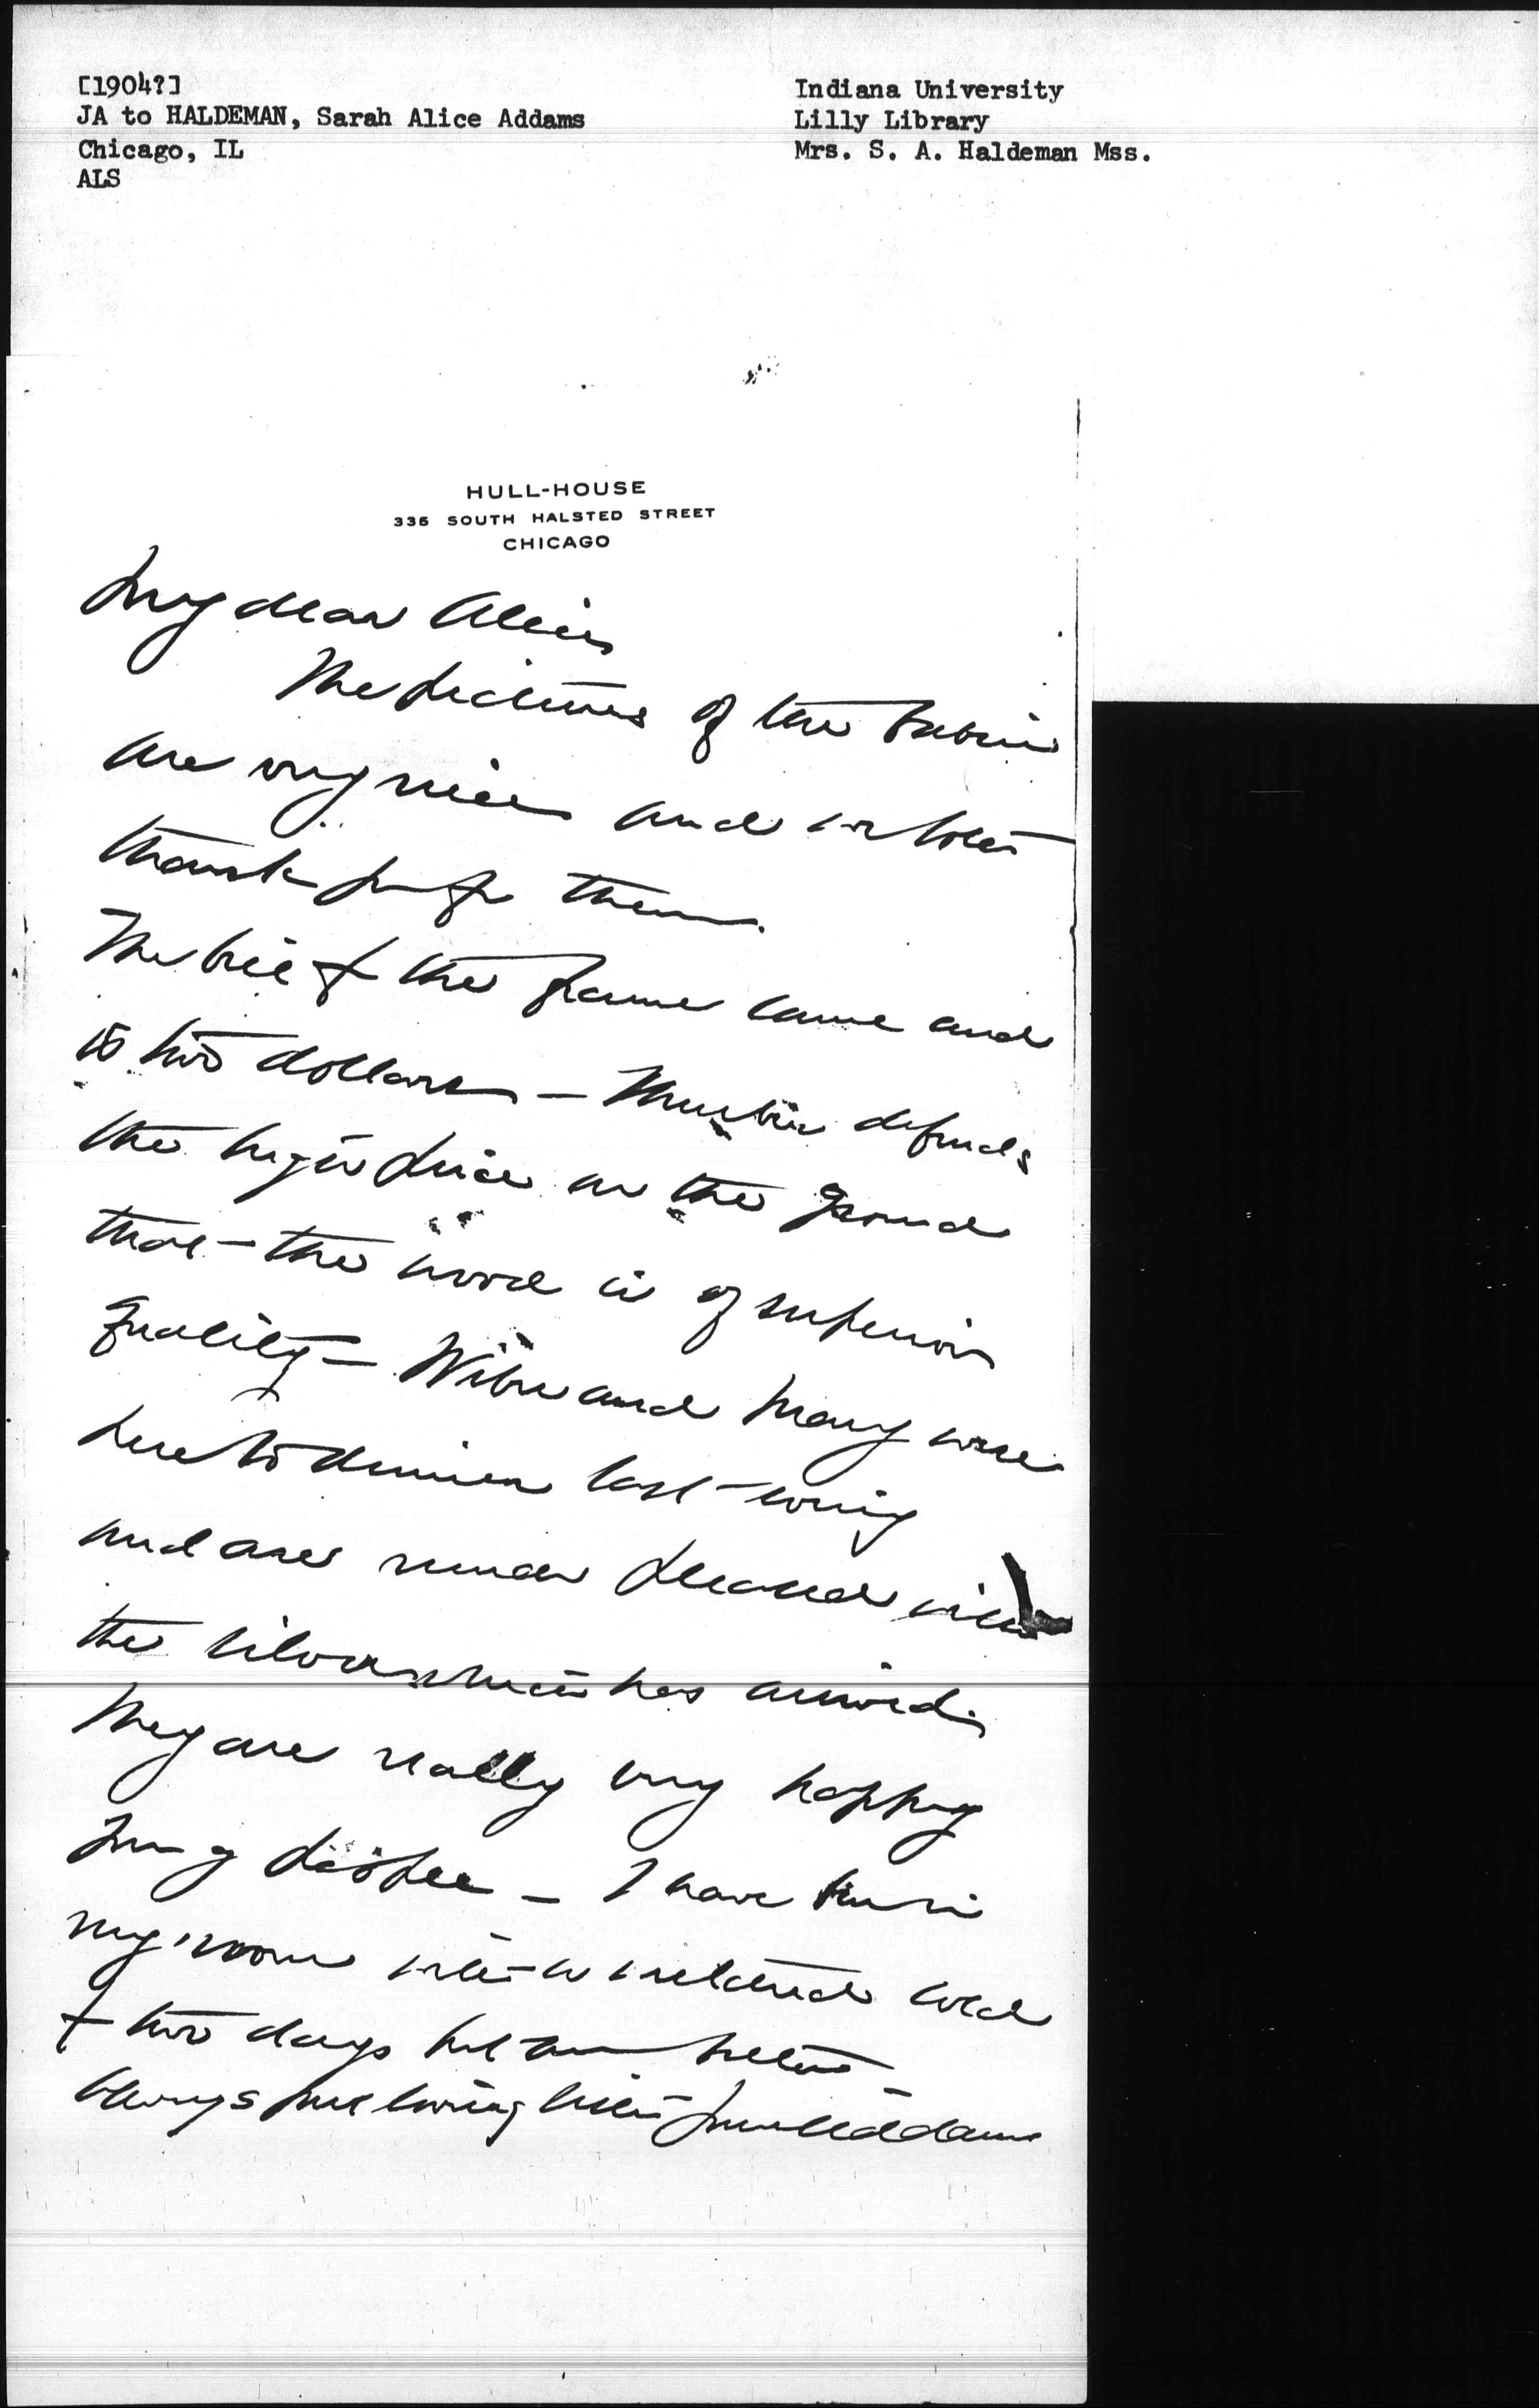 [1904?]
JA to HALDEMAN, Sarah Alice Addams
Chicago, IL
ALS
Indiana University
Lilly Library
Mrs. S. A. Haldeman Mss.
HULL-HOUSE
335 SOUTH HALSTED STREET
CHICAGO
My dear Alice
The pictures of the
are very nice and we both
thank you for them.
The bill for the frame came and
is two dollars — defends
the high price on the ground
that the wood is of superior
quality — and Mary were
here to dinner last evening
and are much pleased with
the silver which has arrived.
They are really very happy
young people — I have been in
my room with a wretched cold
for two days but am better —
Always your loving sister Jane Addams